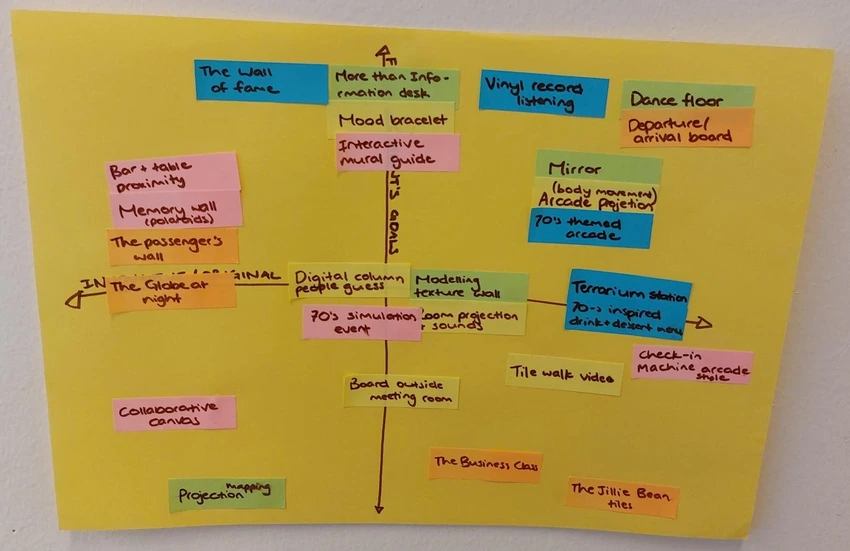 The Wall
of fame
More than Info-
rmation desk
Mood bracelet
Interactive
mural guide
Vinyl record
listening
Dance floor
Departure/
arrival board
Bar + table
proximity
Memory wall
(polaroids)
The passenger's
wall
The Globe at
night
Mirror
(body movement)
Arcade projetion
70's themed
arcade
GOALS
ORIGINAL
Digital column
people guess
Modelling
texture wall
70's simulation
event
projection
+ sounds
Terrarium station
70-s inspired
drink + dessert menu
Check-in
Machine arcade
style
Tile walk video
Board outside
meeting room
Collaborative
canvas
The Business Class
Projection mapping
The Jillie Bean
tiles